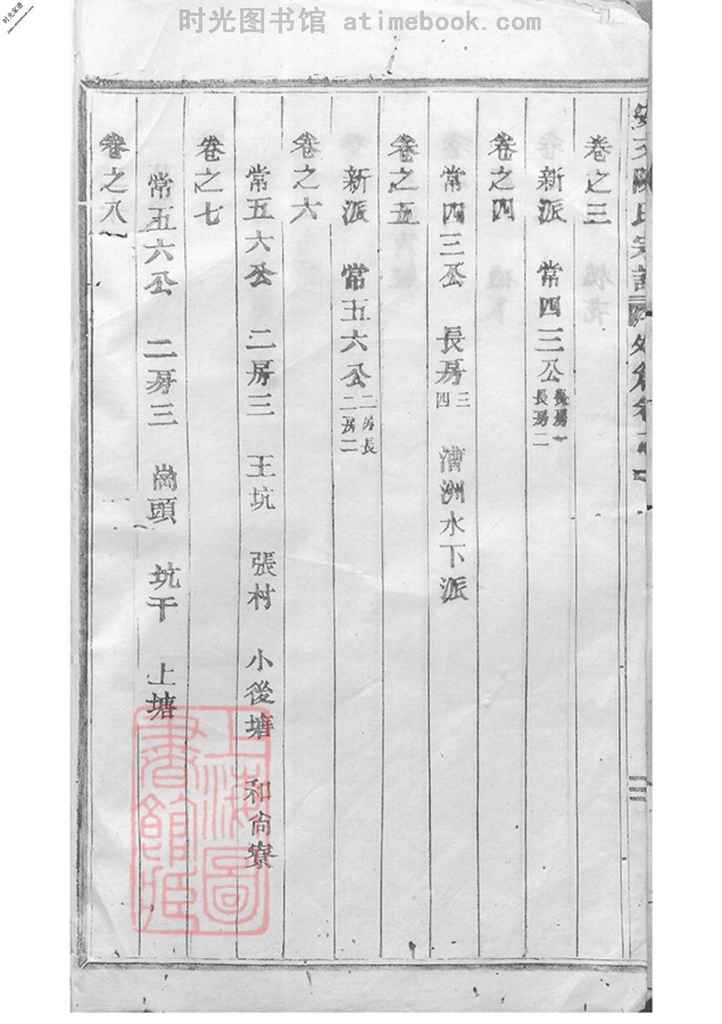 时光图书馆 atimebook.com
卷之三
新派 常四三公 長房一 長房二
卷之四
常四三公 長房 三 四 漕洲水下派
卷之五
新派 常五六公 二房長 二房二
卷之六
常五六公 二房三 王坑 張村 小後塘 和尙寮
卷之七
常五六公 二房三 崗頭 坑干 上塘
卷之八
陳氏宗譜
上海圖書館藏